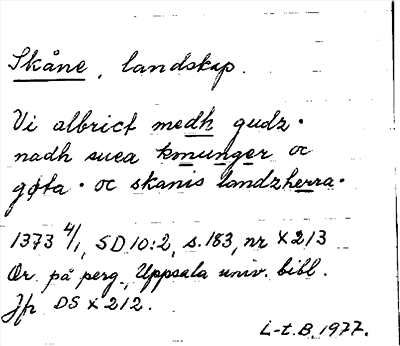 Skåne, landskap.
Vi albrict medh gudz·
nadh suea konunger oc
gøta· oc skanis landzherra·
1373 4/1, SD 10:2, s. 183, nr X 213
Or. på perg., Uppsala univ. bibl.
Jfr DS X 212.
L-t. B. 1977.